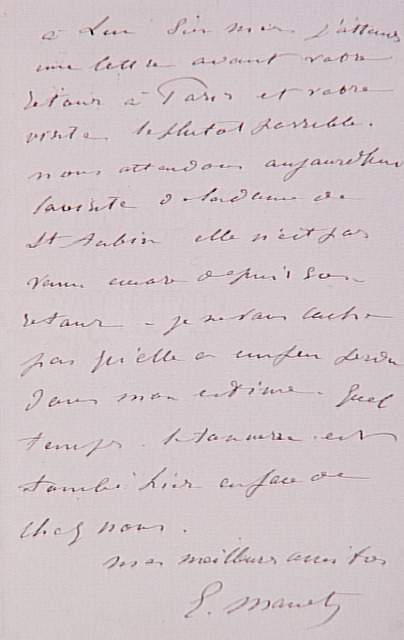 à Luc sur mer j'attends
une lettre avant votre
retour à Paris et votre
visite le plutot possible.
nous attendons aujourd'hui
la visite de Madame de
St Aubin elle n'est pas
venue encore depuis son
retour - je ne vous cache
pas qu'elle a un peu perdu
dans mon estime. Quel
temps. le tonnerre est
tombé hier en face de
chez nous.
mes meilleures amitiés
E. Manet